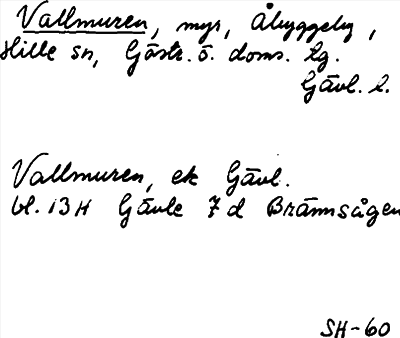 Vallmuren, myr, Åbyggeby,
Hille sn, Gästr. ö. doms. lg.
Gävl. l.
Vallmuren, ek Gävl.
bl. 13H Gävle 7d Brännsågen
SH-60